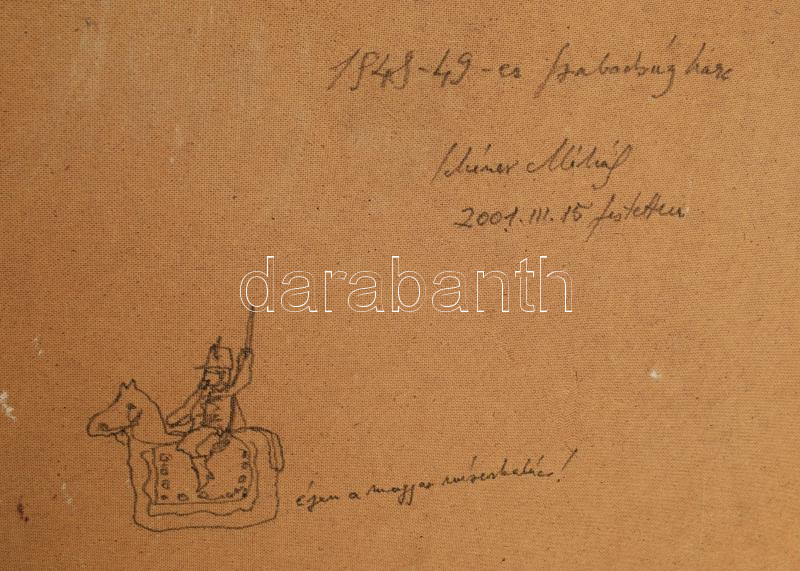 1848-49-es szabadságharc
Schéner Mihály
2001.III.15 festettem
darabanth
éljen a magyar mézeskalács!